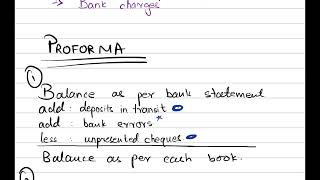 → Bank charges
PROFORMA
①
Balance as per bank statement
add : deposits in transit
add : bank errors *
less : unpresented cheques
Balance as per cash book.